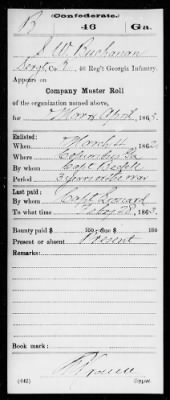 (Confederate.)
B 46 Ga.
J. W. Buchanan
Sergt., Co. 46 Reg't Georgia Infantry.
Appears on
Company Muster Roll
of the organization named above,
for Mar & April, 186
Enlisted:
When March 4, 186
Where Columbus Ga
By whom Capt
Period 3 years or the war
Last paid:
By whom Capt Leonard
To what time Feby 28, 1863.
Bounty paid $ 100; due $ 100
Present or absent Present
Remarks:
Book mark:
(642) Copyist.